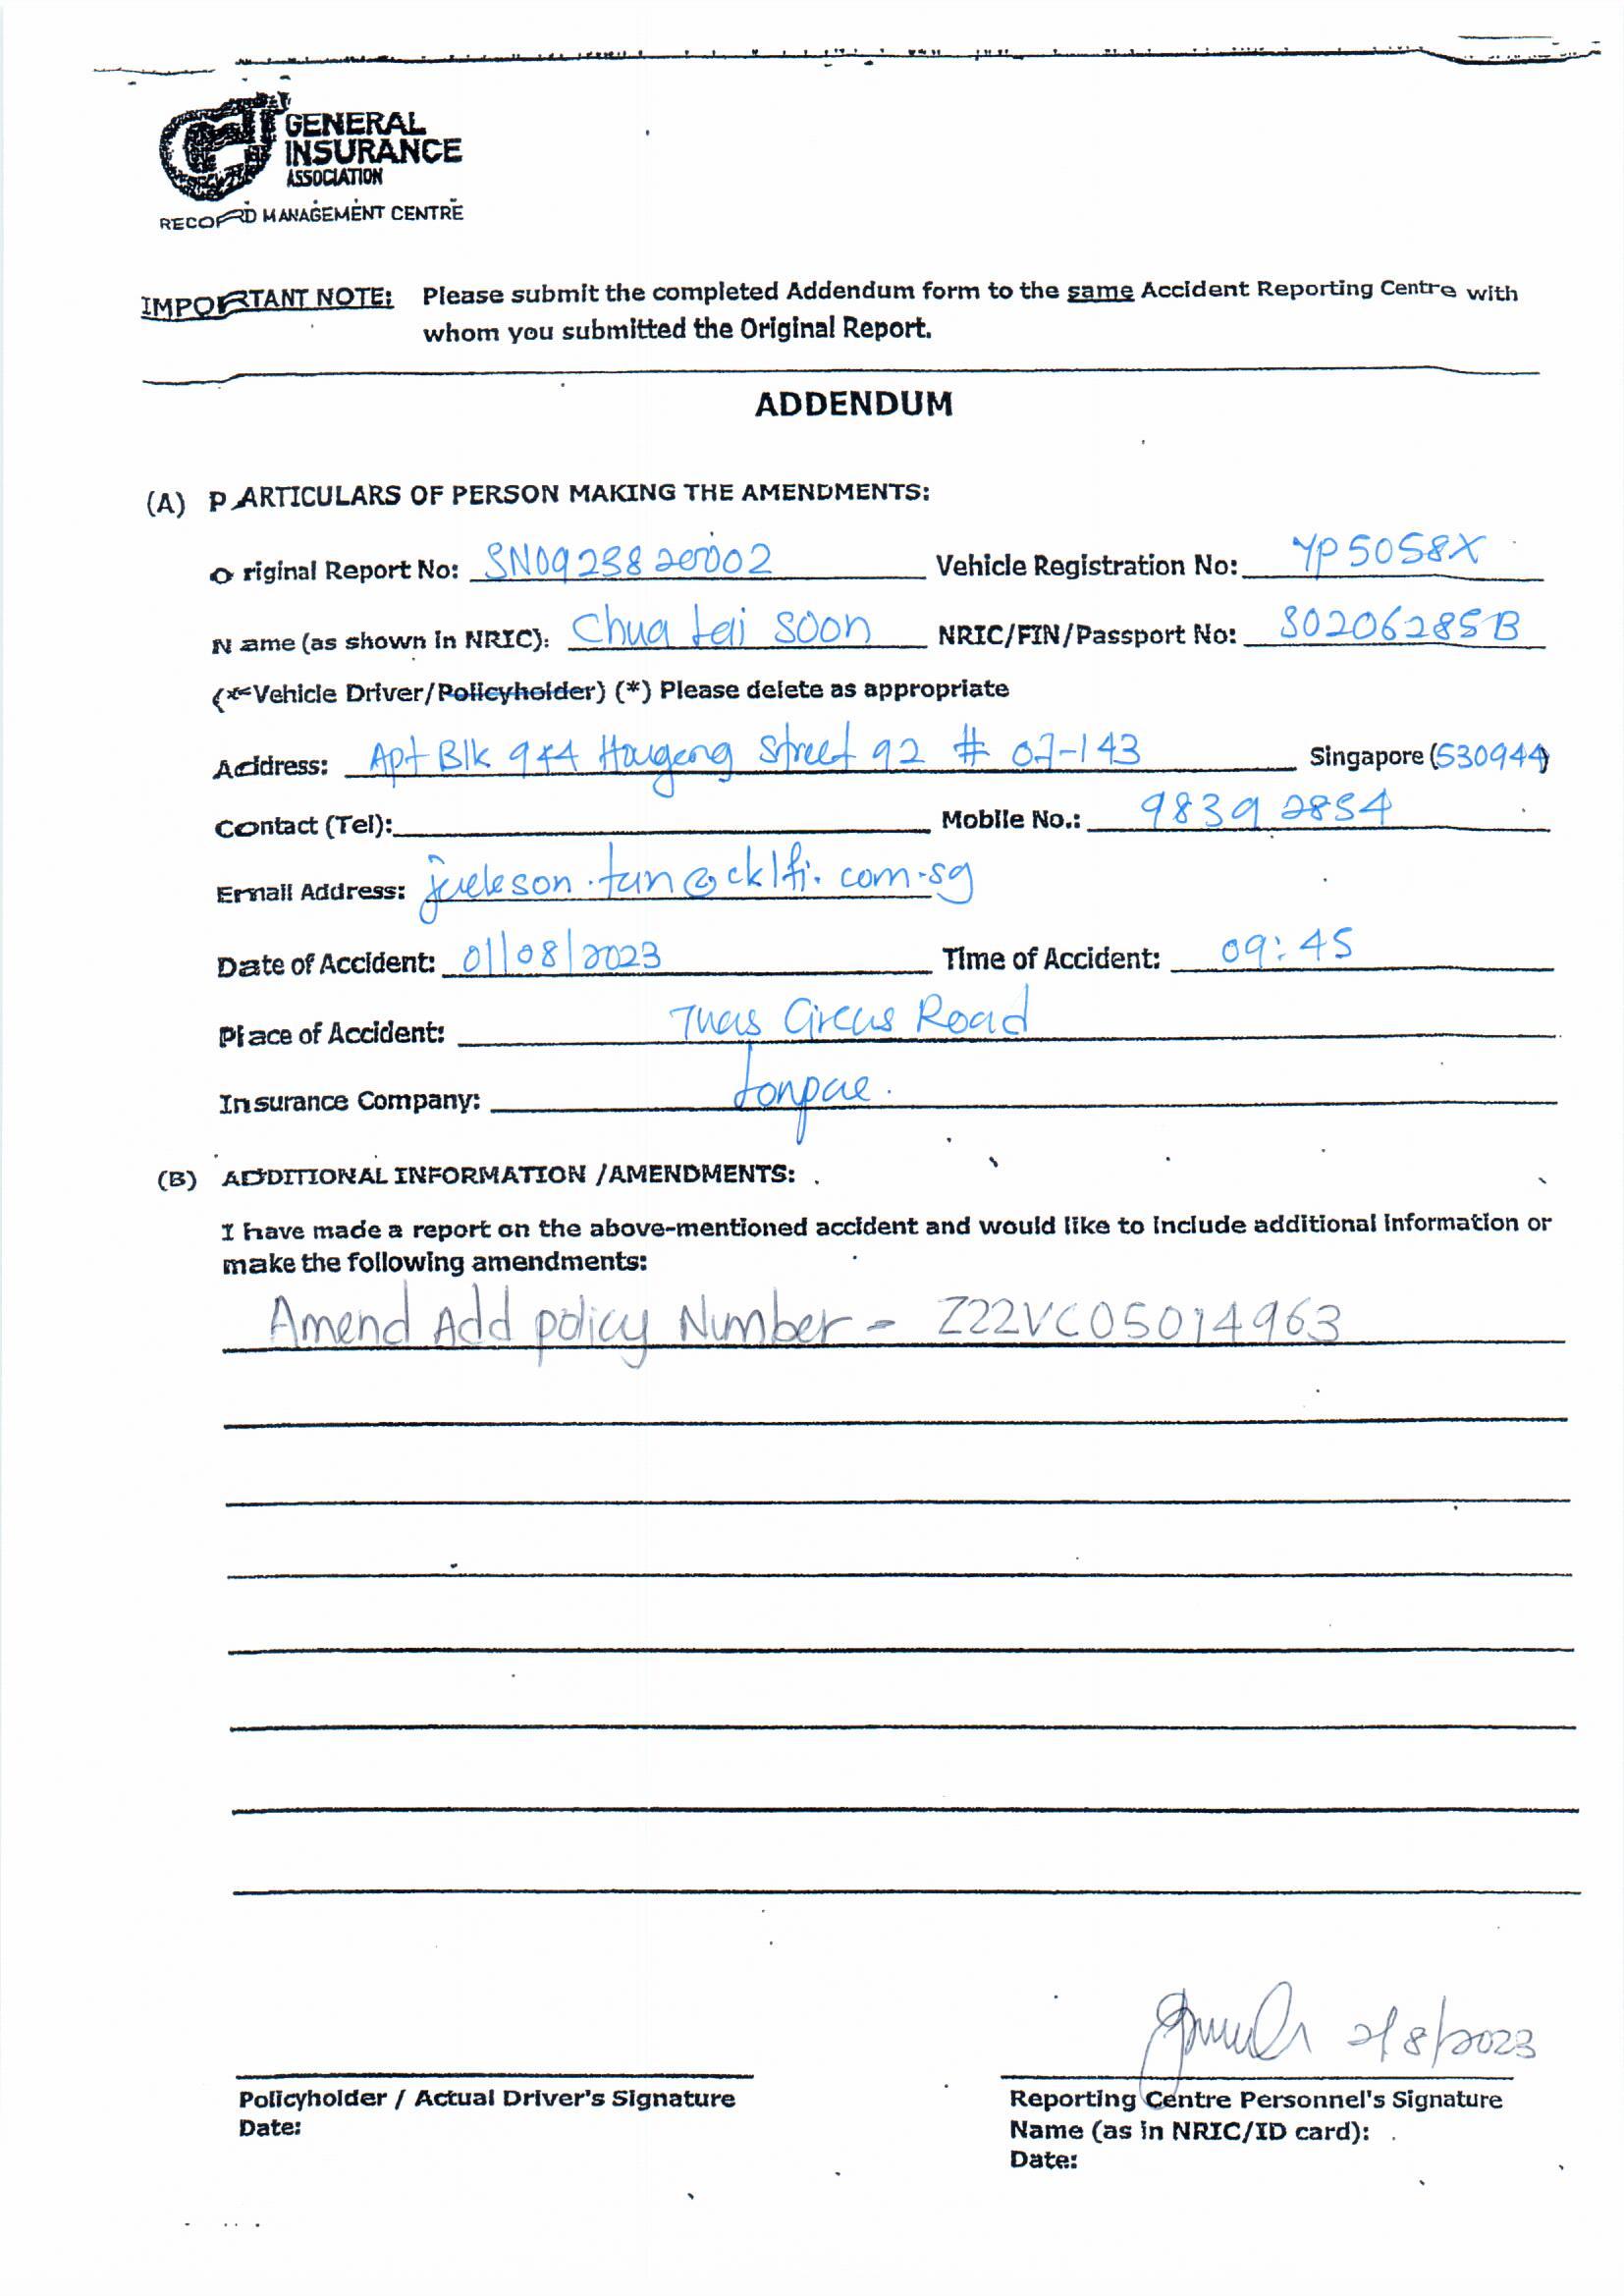 GENERAL
INSURANCE
ASSOCIATION
RECORD MANAGEMENT CENTRE
IMPORTANT NOTE: Please submit the completed Addendum form to the same Accident Reporting Centre with
whom you submitted the Original Report.
ADDENDUM
(A) PARTICULARS OF PERSON MAKING THE AMENDMENTS:
Original Report No: SN0923820002 Vehicle Registration No: YP5058X
Name (as shown in NRIC): Chua tai soon NRIC/FIN/Passport No: S0206285B
(*Vehicle Driver/Policyholder) (*) Please delete as appropriate
Address: Apt Blk 944 Hougang Street 92 # 07-143 Singapore (530944)
Contact (Tel): Mobile No.: 9839 2854
Email Address: @cklfi.com.sg
Date of Accident: 01/08/2023 Time of Accident: 09:45
Place of Accident: Tuas Circus Road
Insurance Company:
(B) ADDITIONAL INFORMATION /AMENDMENTS:
I have made a report on the above-mentioned accident and would like to include additional information or
make the following amendments:
Amend Add policy Number - Z22VC05014963
2/8/2023
Policyholder / Actual Driver's Signature Reporting Centre Personnel's Signature
Date: Name (as in NRIC/ID card):
Date: